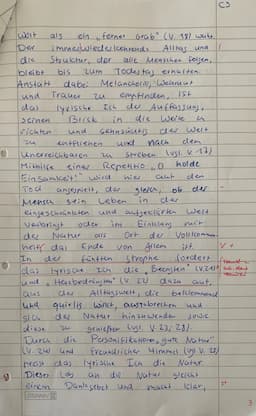 C3
Welt als ein „fernes Grab" (V. 18) weite.
Der immerwiederkehrende Alltag und
die Struktur, der alle Menschen folgen,
bleibt bis zum Todestag erhalten.
Anstatt dabei Melancholie, Wehmut
und Trauer zu empfinden, ist
das lyrische Ich der Auffassung,
seinen Blick in die Weite zu
richten und sehnsüchtig der Welt
zu entfliehen und nach dem
Unerreichbaren zu streben (vgl. V. 17)
Mithilfe einer Repetitio „O holde
Einsamkeit" wird hier auf den
Tod angespielt, der gleich, ob der
Mensch sein Leben in der
eingeschränkten und aufgeklärten Welt
verbringt oder im Einklang mit
der Natur als Ort der Vollkommen-
heit, das Ende von Allem ist.
In der fünften Strophe fordert
das lyrische Ich die
und (V. 22) dazu auf,
aus der Alltagswelt, die beklemmend
und quirlig wirkt, auszubrechen und
sich der Natur hinzuwenden sowie
diese zu genießen (vgl. V. 23, 28).
Durch die Personifikationen „gute Natur"
(V. 24) und freundlicher Himmel (vgl. V. 28)
preist das lyrische Ich die Natur.
Dieses Lob an die Natur gleicht
einem Dankgebet und macht klar,
3